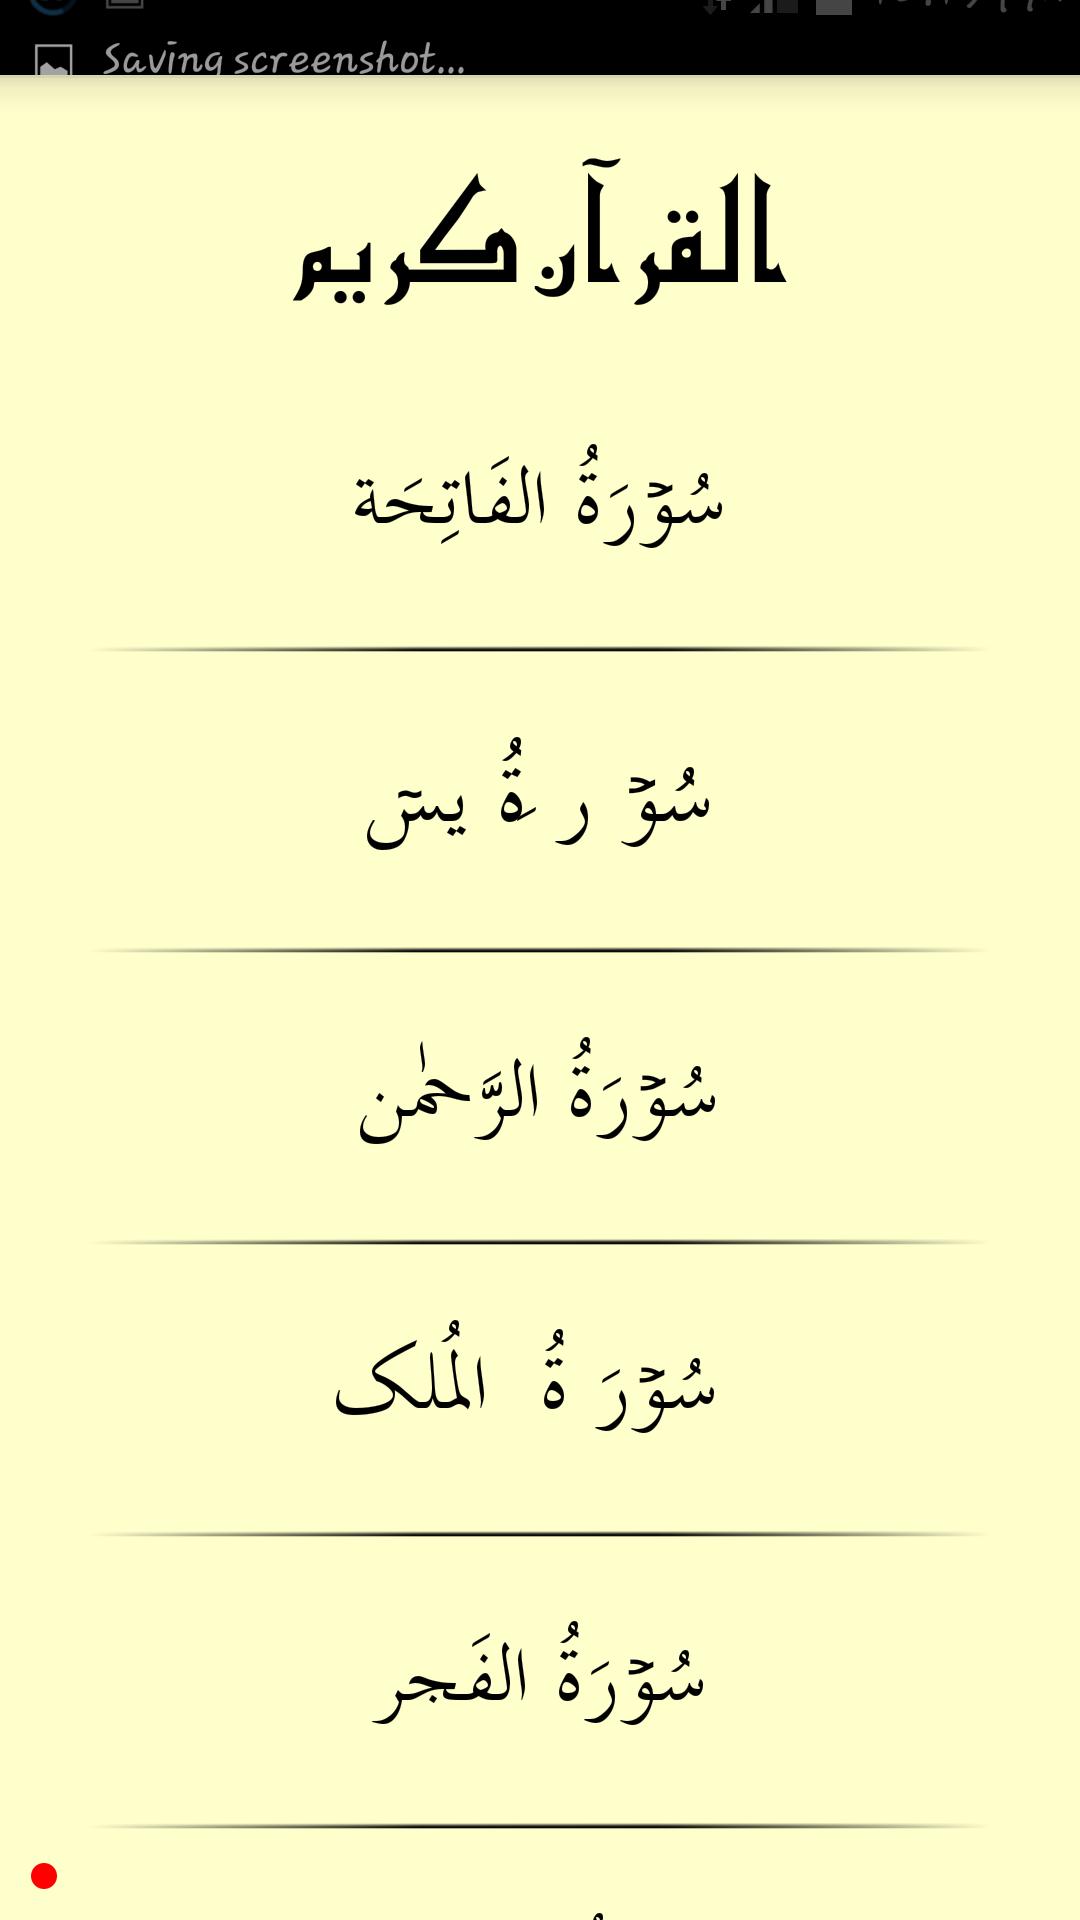 Saving screenshot...
القرآن كريم
سُوۡرَةُ الفَاتِحَة
سُوۡ ر ةُ یسٓ
سُوۡرَةُ الرَّحمٰن
سُوۡرَ ةُ المُلک
سُوۡرَةُ الفَجر